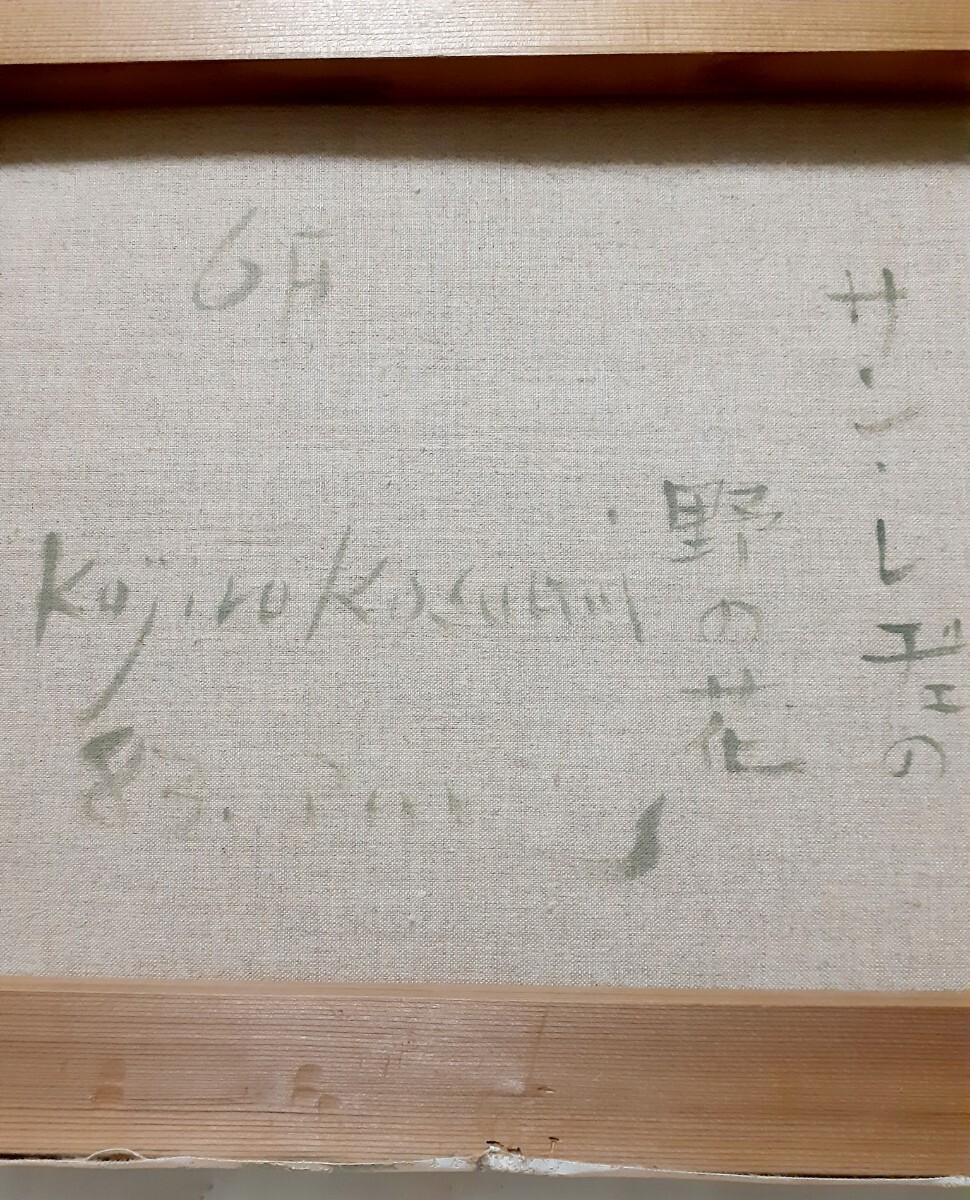 6F
サン・レヂェの
野の花
Kojiro Kosugi
83.